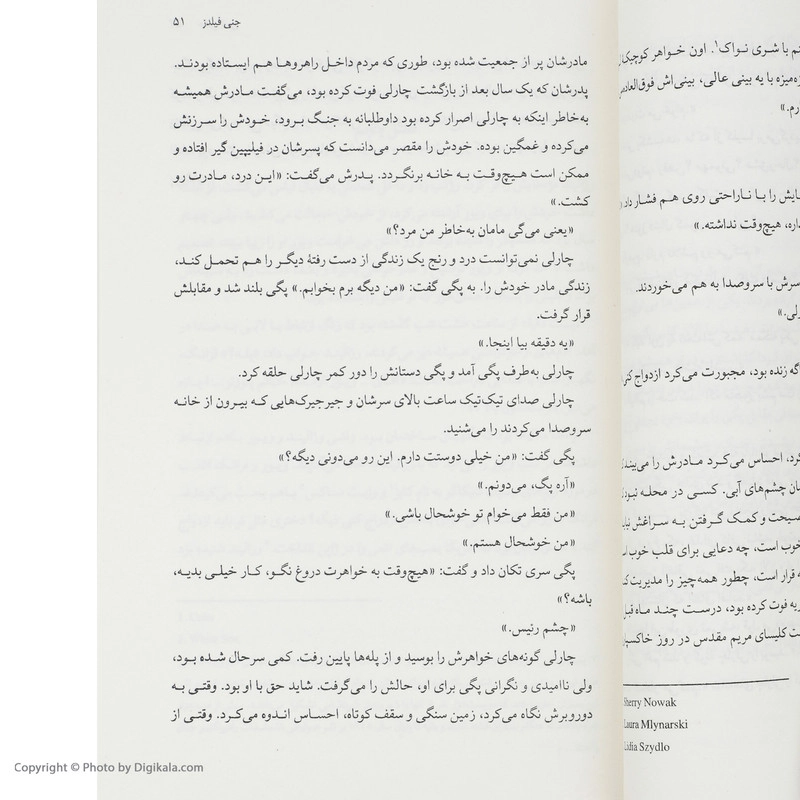 نم با شری نواک۱. اون خواهر کوچیکه
زه‌میزه با یه بینی عالی، بینی‌اش فوق‌العاده
رم.»
ایش را با ناراحتی روی هم فشار داد و
داره، هیچ‌وقت نداشته.»
سرش با سروصدا به هم می‌خوردند.
ولی.»
اگه زنده بود، مجبورت می‌کرد ازدواج
کرد، احساس می‌کرد مادرش را
چشم‌های آبی. کسی در محله
صیحت و کمک گرفتن به سراغش
خوب است، چه دعایی برای قلب خوب
قرار است، چطور همه‌چیز را مدیریت
به فوت کرده بود، درست چند ماه قبل
کلیسای مریم مقدس در روز
Sherry Nowak
Laura Mlynarski
Lidia Szydlo
جنی فیلدز ۵۱
مادرشان پر از جمعیت شده بود، طوری که مردم داخل راهروها هم ایستاده بودند.
پدرشان که یک سال بعد از بازگشت چارلی فوت کرده بود، می‌گفت مادرش همیشه
به‌خاطر اینکه به چارلی اصرار کرده بود داوطلبانه به جنگ برود، خودش را سرزنش
می‌کرده و غمگین بوده. خودش را مقصر می‌دانست که پسرشان در فیلیپین گیر افتاده و
ممکن است هیچ‌وقت به خانه برنگردد. پدرش می‌گفت: «این درد، مادرت رو
کشت.»
«یعنی می‌گی مامان به‌خاطر من مرد؟»
چارلی نمی‌توانست درد و رنج یک زندگی از دست رفتهٔ دیگر را هم تحمل کند،
زندگی مادر خودش را. به پگی گفت: «من دیگه برم بخوابم.» پگی بلند شد و مقابلش
قرار گرفت.
«یه دقیقه بیا اینجا.»
چارلی به‌طرف پگی آمد و پگی دستانش را دور کمر چارلی حلقه کرد.
چارلی صدای تیک‌تیک ساعت بالای سرشان و جیرجیرک‌هایی که بیرون از خانه
سروصدا می‌کردند را می‌شنید.
پگی گفت: «من خیلی دوستت دارم. این رو می‌دونی دیگه؟»
«آره پگ، می‌دونم.»
«من فقط می‌خوام تو خوشحال باشی.»
«من خوشحال هستم.»
پگی سری تکان داد و گفت: «هیچ‌وقت به خواهرت دروغ نگو، کار خیلی بدیه،
باشه؟»
«چشم رئیس.»
چارلی گونه‌های خواهرش را بوسید و از پله‌ها پایین رفت. کمی سرحال شده بود،
ولی ناامیدی و نگرانی پگی برای او، حالش را می‌گرفت. شاید حق با او بود. وقتی به
دوروبرش نگاه می‌کرد، زمین سنگی و سقف کوتاه، احساس اندوه می‌کرد. وقتی از
Copyright © Photo by Digikala.com